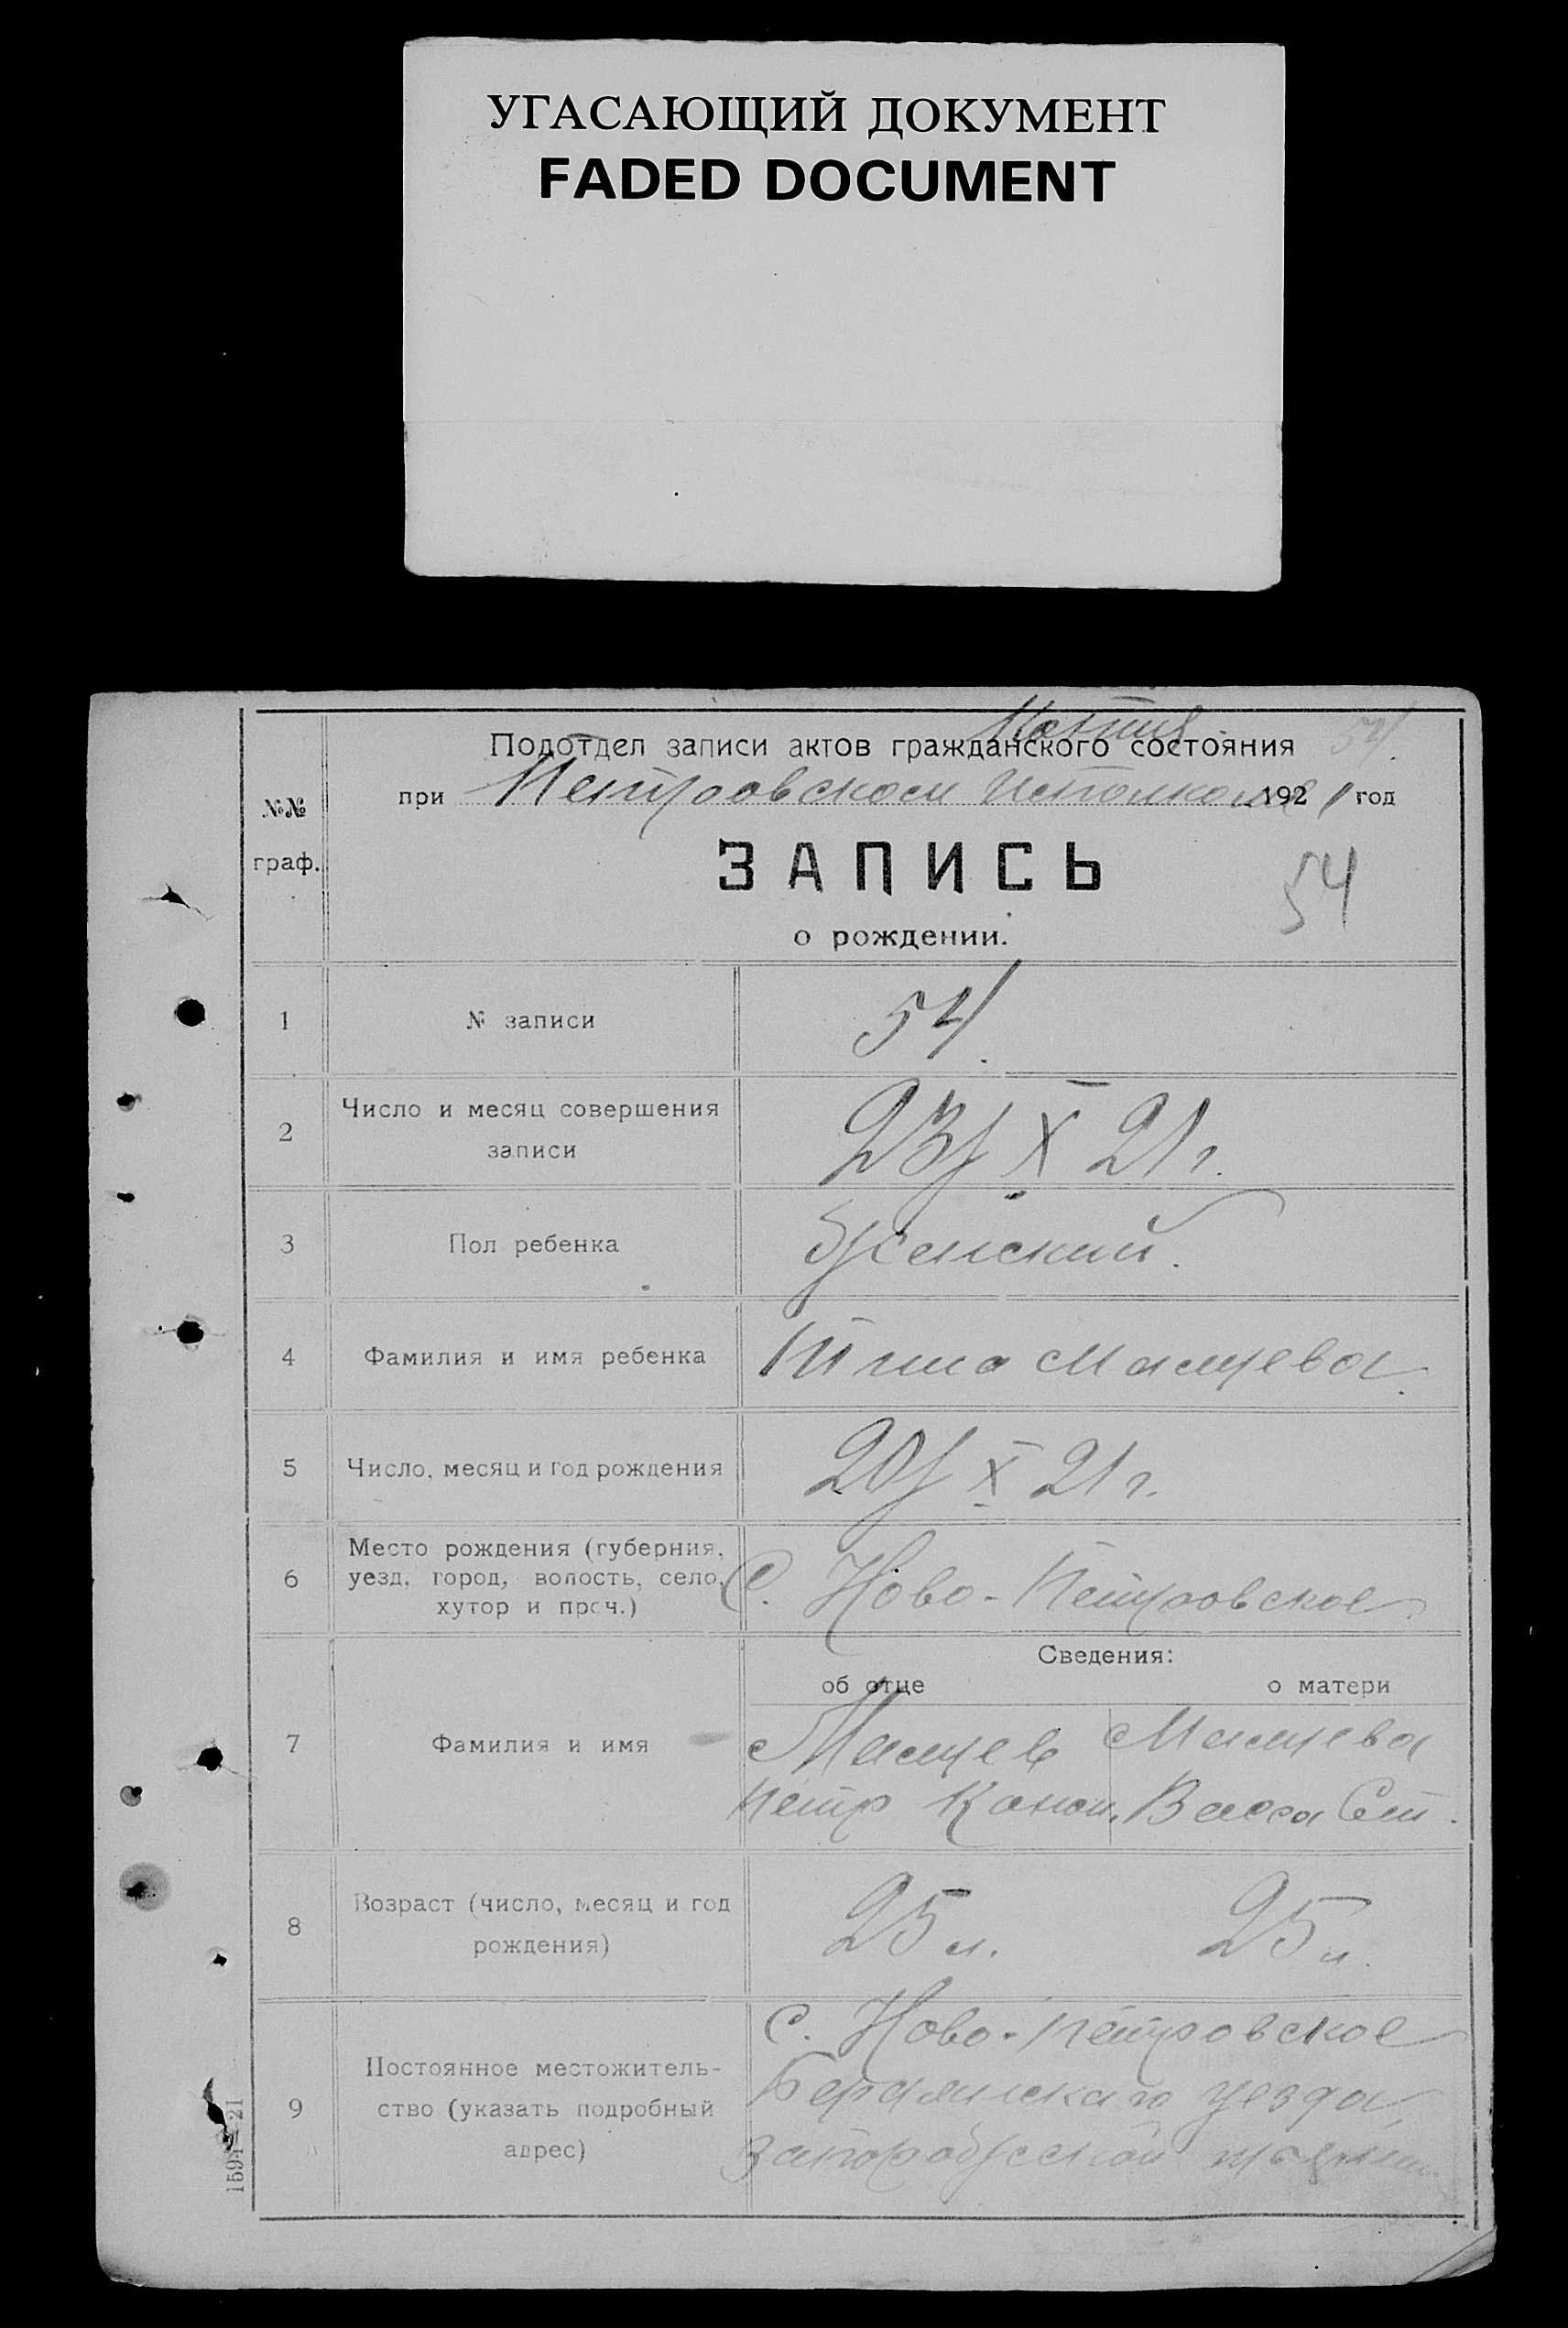 УГАСАЮЩИЙ ДОКУМЕНТ
FADED DOCUMENT
Копия 54
Подотдел записи актов гражданского состояния
при Петровском Исполкоме 1921 год
№№
граф.
ЗАПИСЬ
54
о рождении.
1 № записи 54
2 Число и месяц совершения
записи 23/X 21 г.
3 Пол ребенка Женский.
4 Фамилия и имя ребенка
5 Число, месяц и год рождения 20/X 21 г.
6 Место рождения (губерния,
уезд, город, волость, село,
хутор и проч.) С. Ново-Петровское
Сведения:
об отце о матери
7 Фамилия и имя
Петр Васса
8 Возраст (число, месяц и год
рождения) 25 л. 25 л.
9 Постоянное местожитель-
ство (указать подробный
адрес) С. Ново-Петровское
Бердянскаго уезда,
159 21